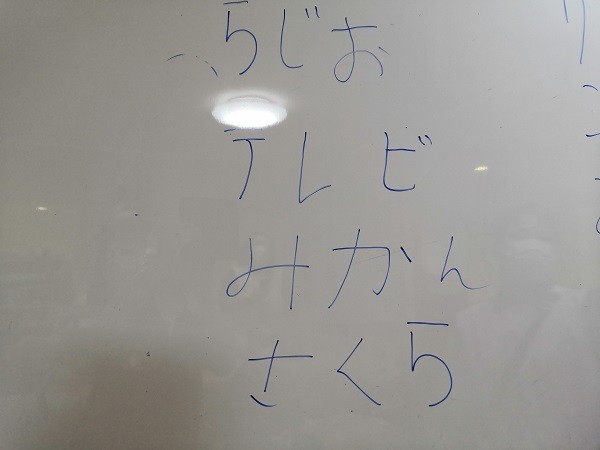 らじお
テレビ
みかん
さくら